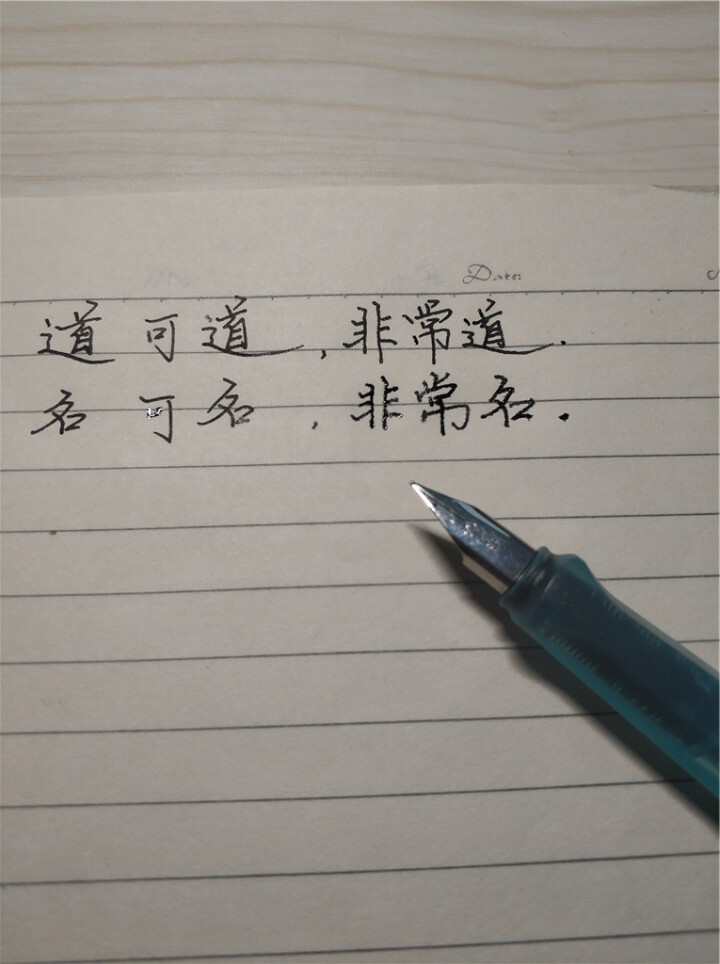 Date
道可道,非常道.
名可名,非常名.